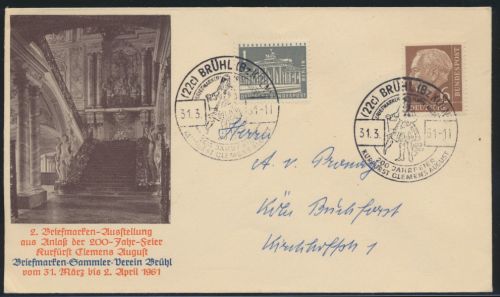 (22c) BRÜHL (Bz. Köln)
31.3. 61-11
200 JAHRFEIER
KURFÜRST CLEMENS AUGUST
DEUTSCHE
BUNDESPOST
(22c) BRÜHL (Bz. Köln)
31.3. 61-11
200 JAHRFEIER
KURFÜRST CLEMENS AUGUST
Herrn
A. v.
Köln
Kirchhofstr. 1
2. Briefmarken-Ausstellung
aus Anlaß der 200-Jahr-Feier
Kurfürst Clemens August
Briefmarken-Sammler-Verein Brühl
vom 31. März bis 2. April 1961